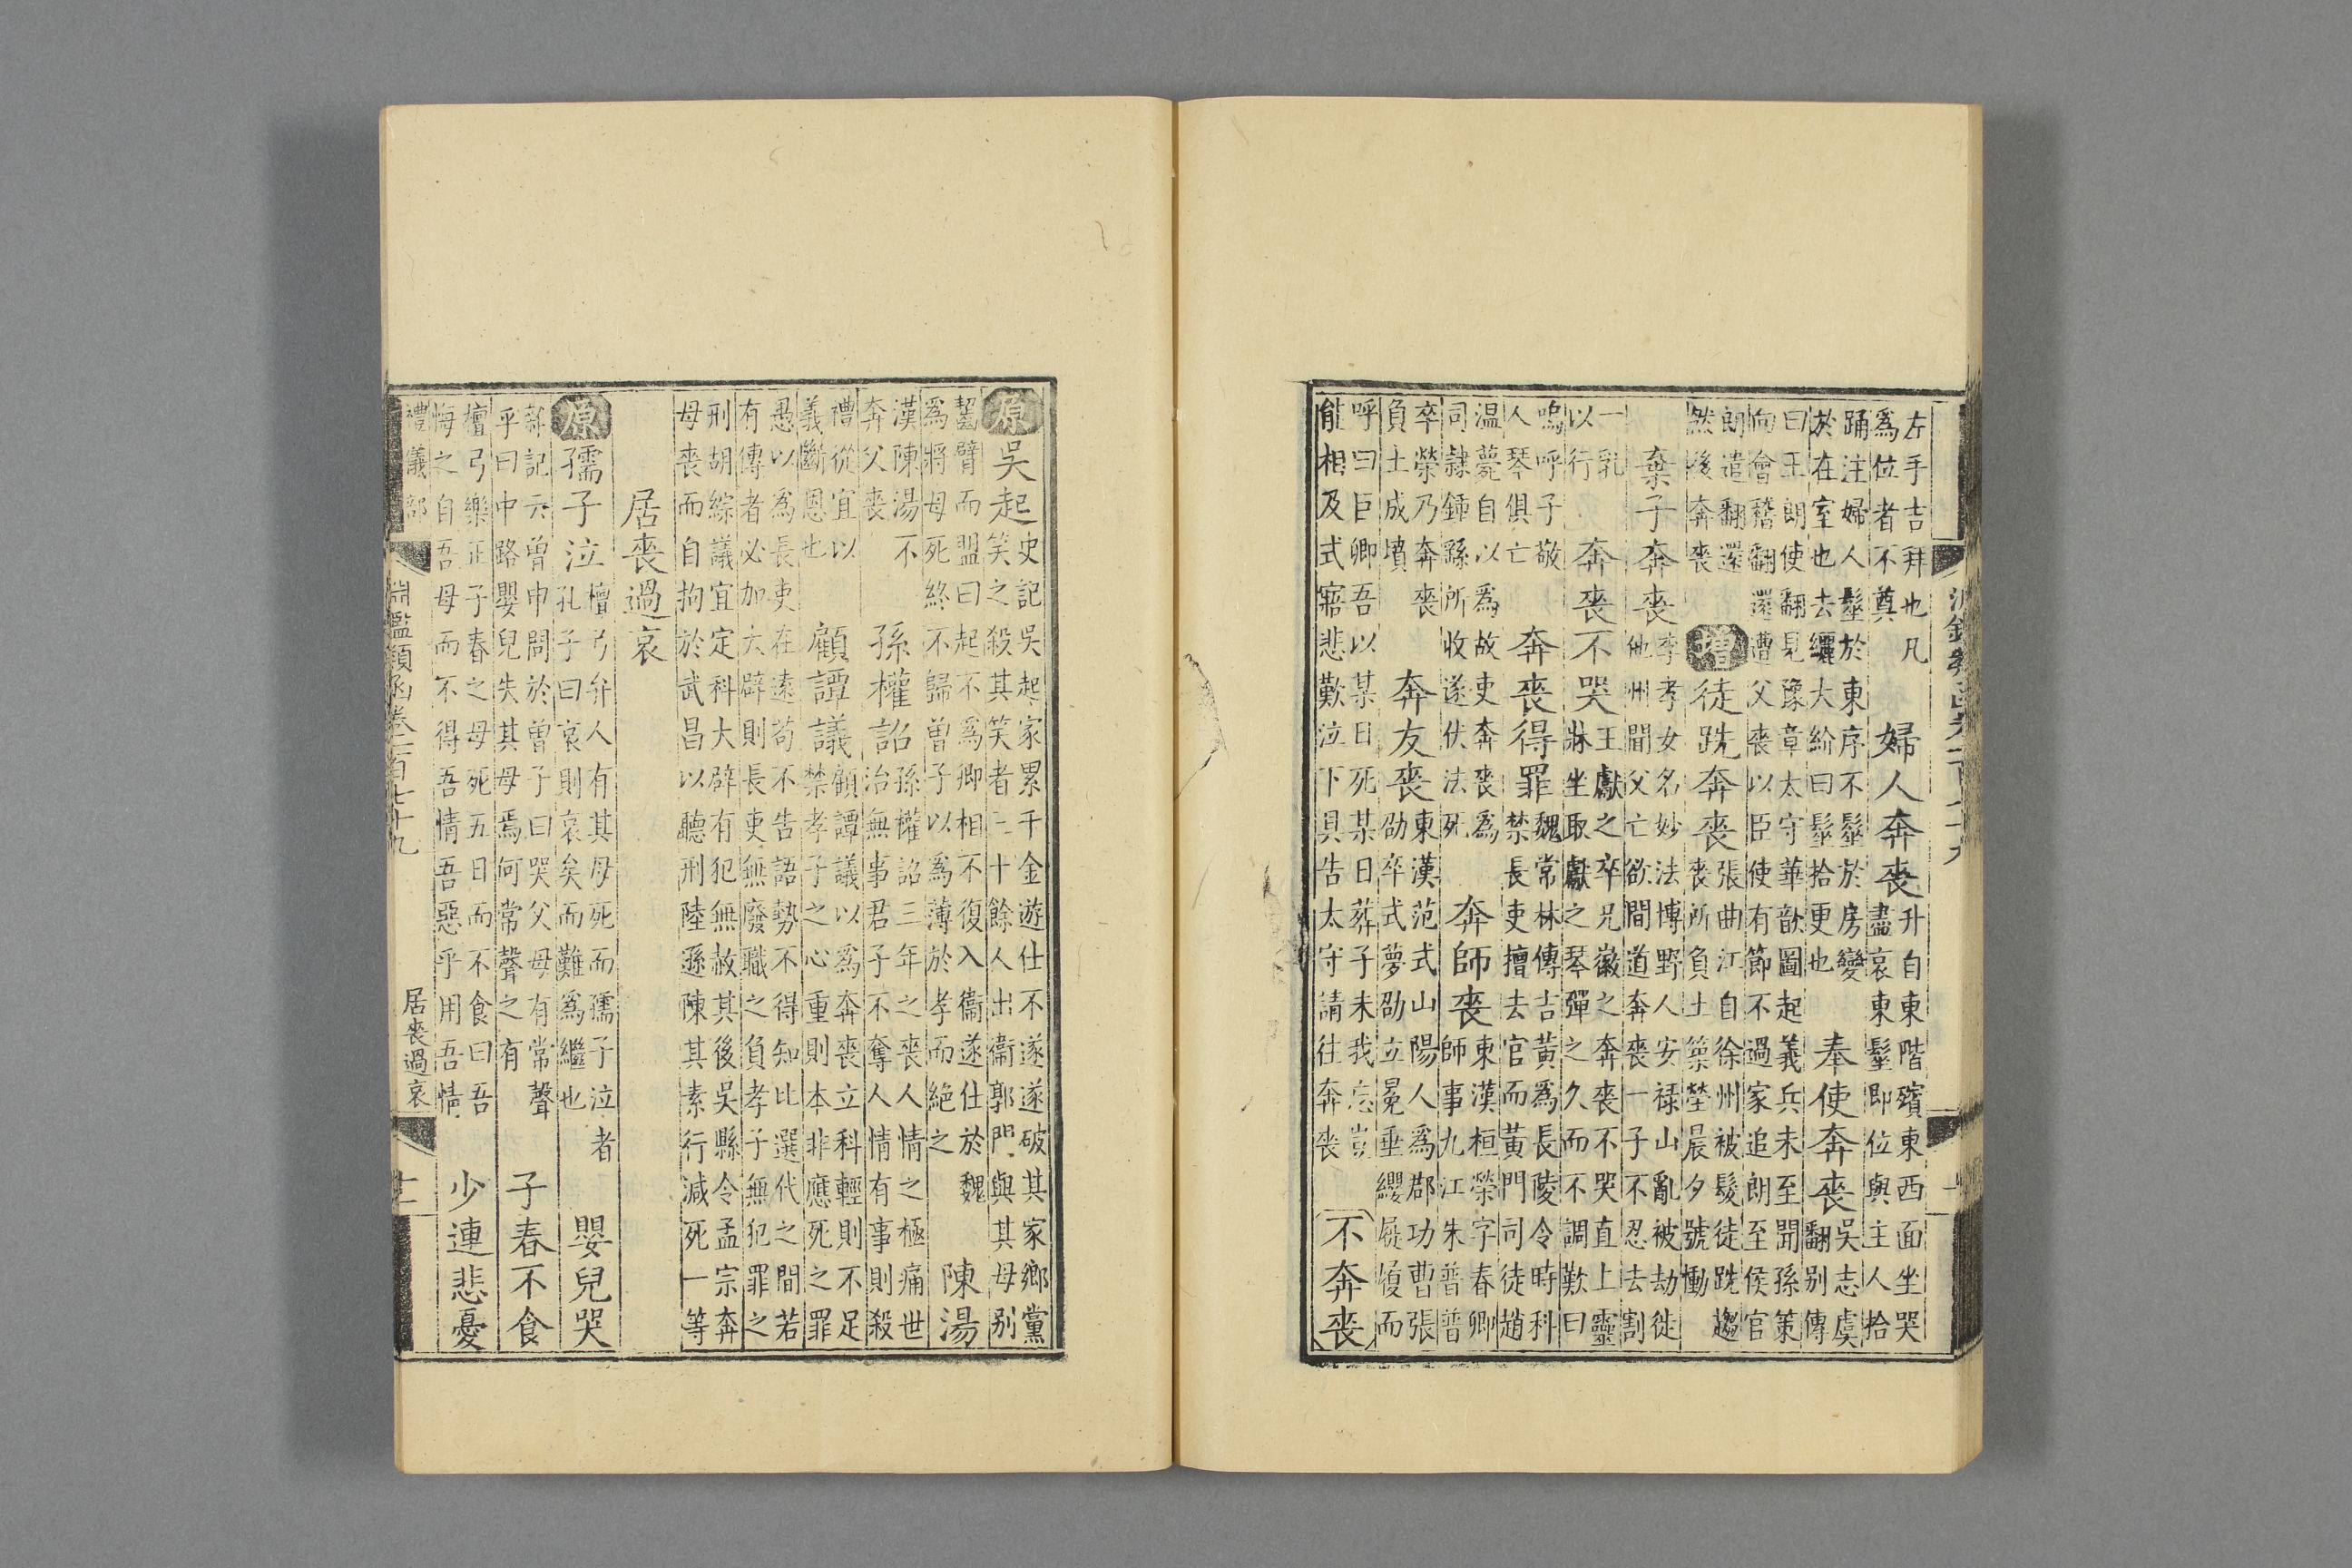 左手吉拜也凡
為位者不奠
婦人奔喪
升自東階殯東西面坐哭
盡哀東髽即位與主人拾
踊注婦人髽於東序不髽於房變
於在室也去纚大紒曰髽拾更也
奉使奔喪
吳志虞
翻别傳
曰王朗使翻見豫章太守華歆圖起義兵未至聞孫策
向會稽翻還遭父喪以臣使有節不過家追朗至侯官
朗遣翻還
然後奔喪
增
徒跣奔喪
張曲江自徐州被髮徒跣趨
喪所負土築塋晨夕號慟
棄子奔喪
李孝女名妙法博野人安禄山亂被劫徙
他州聞父亡欲間道奔喪一子不忍去割
一乳
以行
奔喪不哭
王獻之卒兄徽之奔喪不哭直上靈
牀坐取獻之琴彈之久而不調歎曰
嗚呼子敬
人琴俱亡
奔喪得罪
魏常林傳吉黃為長陵令時科
禁長吏擅去官而黃門司徒趙
温薨自以為故吏奔喪為
司隸鍾繇所收遂伏法死
奔師喪
東漢桓榮字春卿
師事九江朱普普
卒榮乃奔喪
負土成墳
奔友喪
東漢范式山陽人為郡功曹張
劭卒式夢劭立冕垂纓屣履而
呼曰巨卿吾以某日死某日葬子未我忘豈
能相及式寤悲歎泣下具告太守請往奔喪
不奔喪
原
吳起
史記吳起家累千金遊仕不遂遂破其家鄉黨
笑之殺其笑者三十餘人出衞郭門與其母别
齧臂而盟曰起不為卿相不復入衞遂仕於魏
為將母死終不歸曾子以為薄於孝而絶之
陳湯
漢陳湯不
奔父喪
孫權詔
孫權詔三年之喪人情之極痛世
治無事君子不奪人情有事則殺
禮從宜以
義斷恩也
顧譚議
顧譚議以為奔喪立科輕則不足
禁孝子之心重則本非應死之罪
愚以為長吏在遠苟不告語勢不得知比選代之間若
有傳者必加大辟則長吏無廢職之負孝子無犯罪之
刑胡綜議宜定科大辟有犯無赦其後吳縣令孟宗奔
母喪而自拘於武昌以聽刑陸遜陳其素行減死一等
居喪過哀
原
孺子泣
檀弓弁人有其母死而孺子泣者
孔子曰哀則哀矣而難為繼也
嬰兒哭
雜記云曾申問於曾子曰哭父母有常聲
乎曰中路嬰兒失其母焉何常聲之有
子春不食
檀弓樂正子春之母死五日而不食曰吾
悔之自吾母而不得吾情吾惡乎用吾情
少連悲憂
禮儀部
淵鑑類函卷一百七十九
居喪過哀